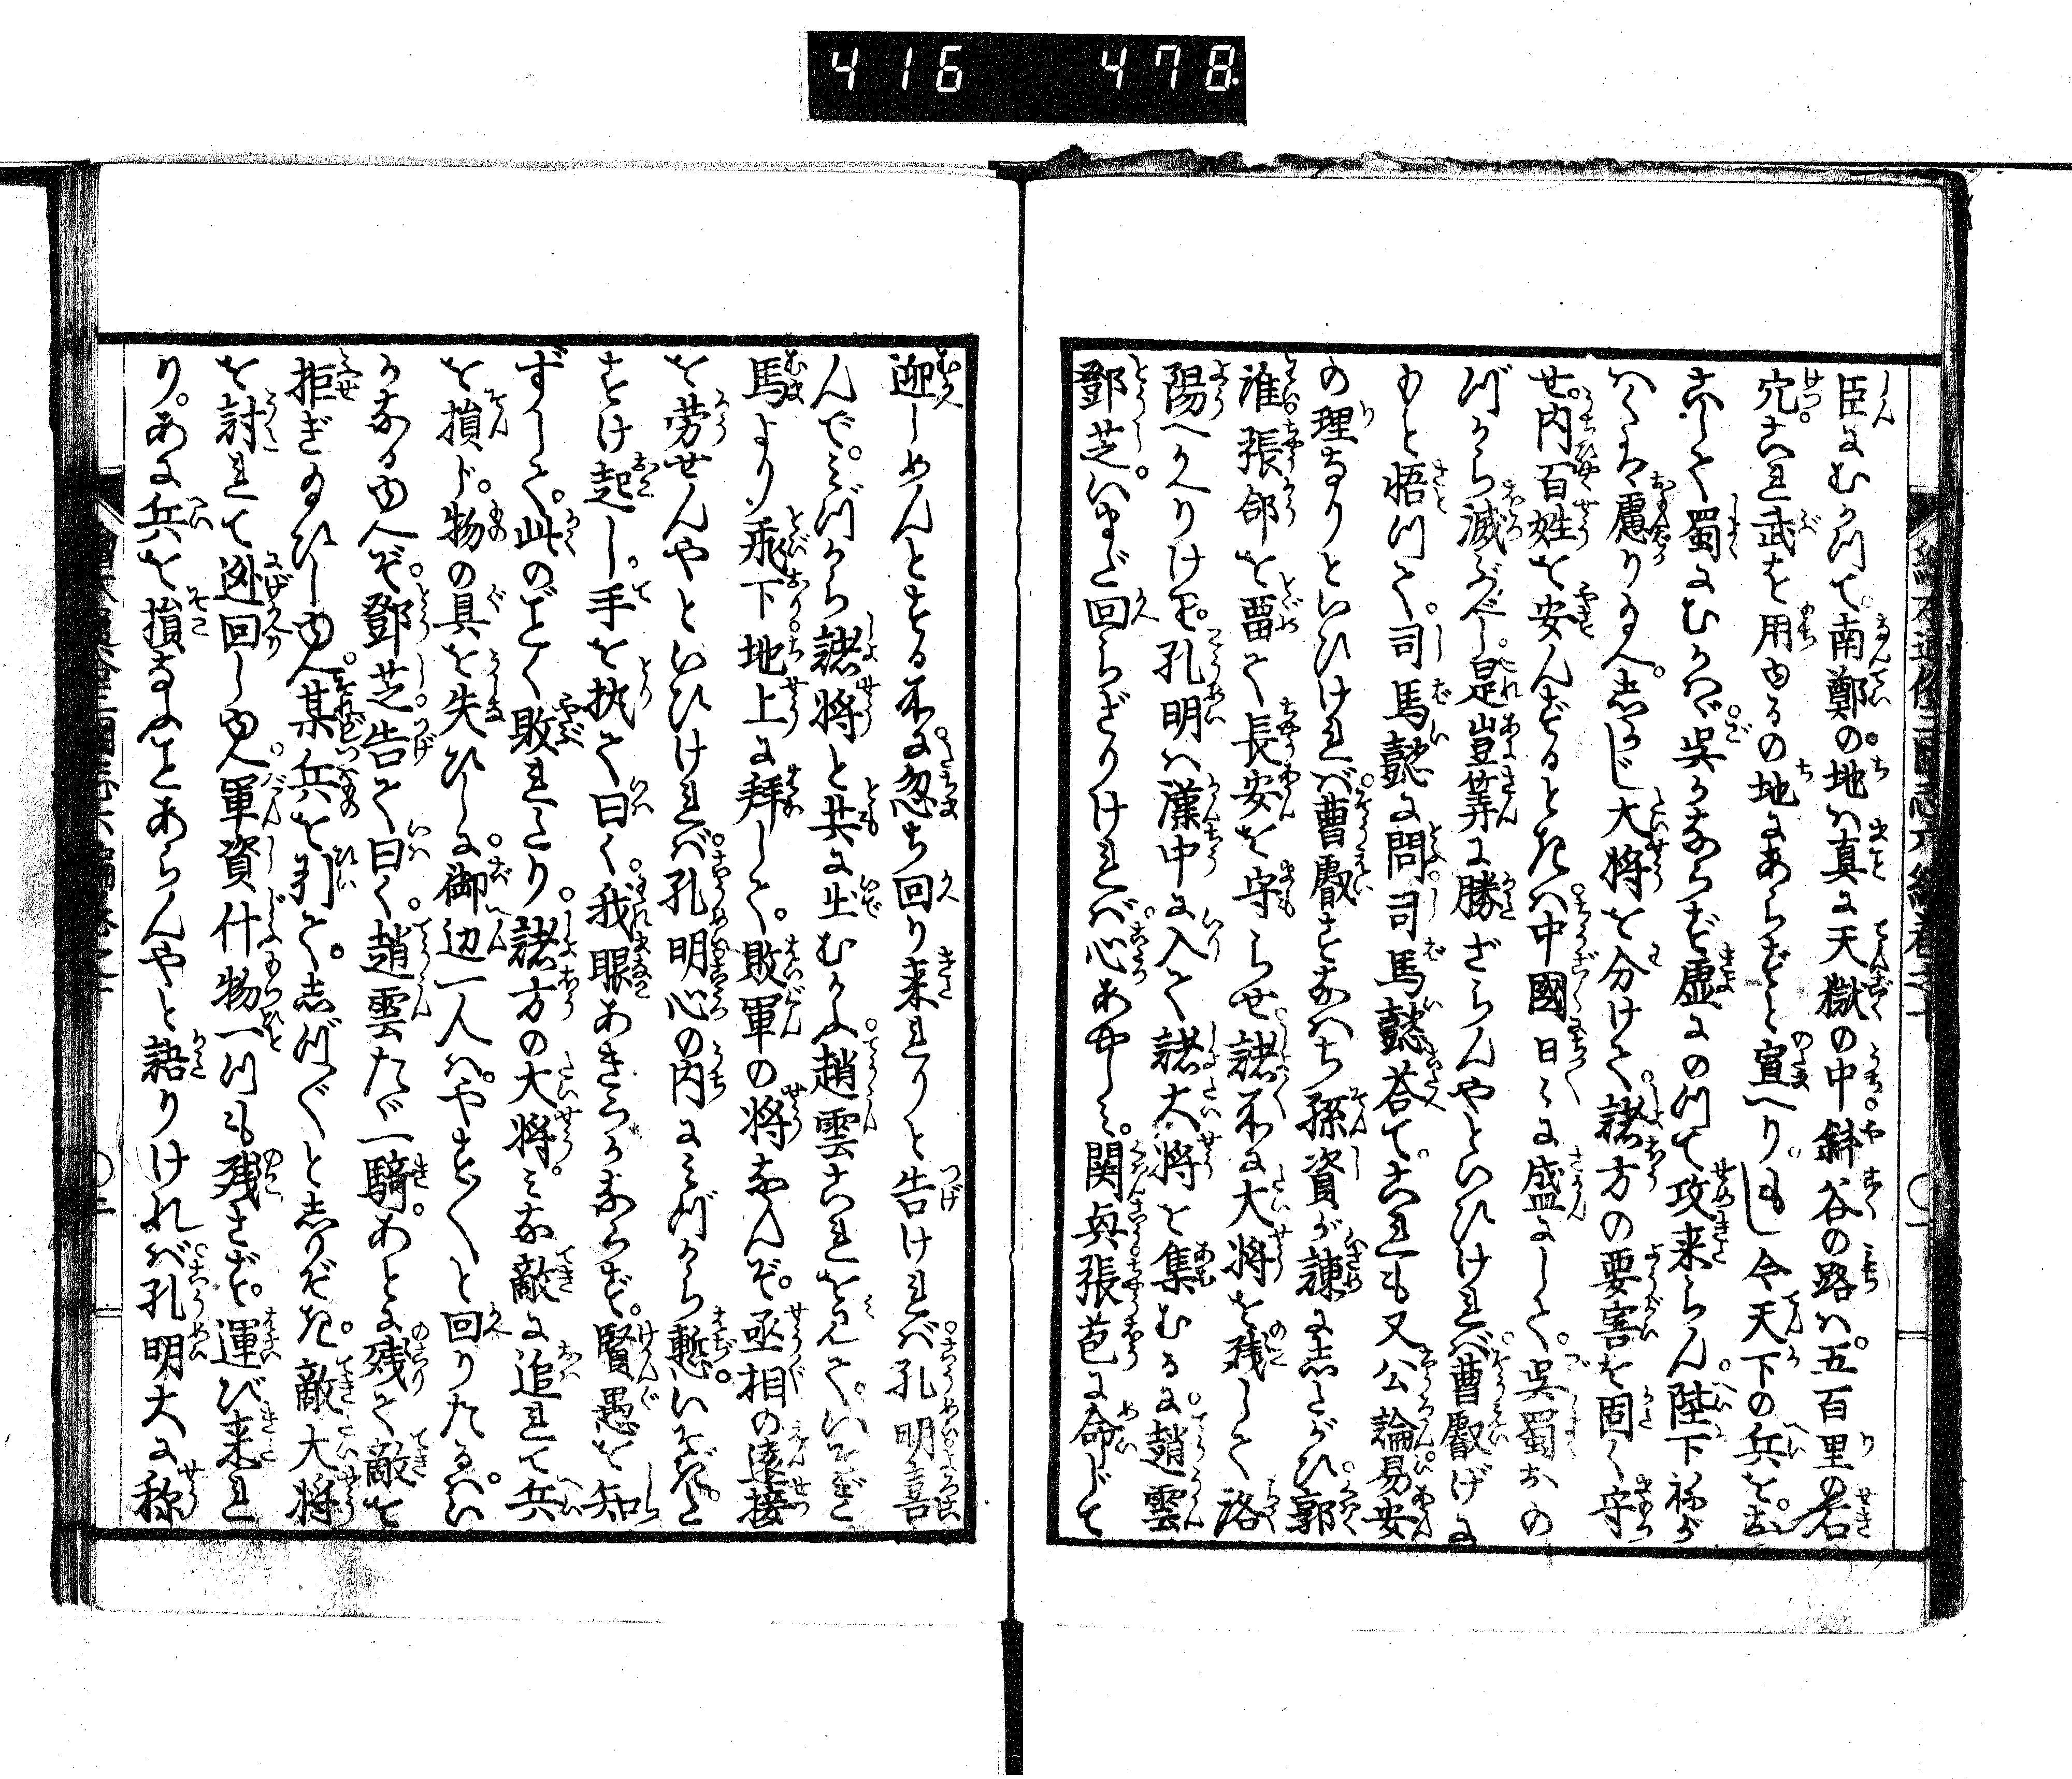 416 478
臣にむかつて。南鄭の地は真に天獄の中斜谷の路は。五百里の石
穴。これ武を用ゆるの地にあらずと宣へり。もし今天下の兵を。お
こして蜀にむかはゞ。呉かならず虚にのつて攻来らん。陛下ねが
はくは慮り給へ。しかじ大将を分けて。諸方の要害を固く守
せ。内百姓を安んずるときは。中國日々に盛にして。呉蜀おの
づから滅ぶべし。是豈筭に勝ざらんやといひければ。曹叡げに
もと悟つて。司馬懿に問。司馬懿答て。これも又公論易安
の理なりといひければ。曹叡すなはち孫資が諌にしたがひ。郭
淮張郃を畱て長安を守らせ。諸所に大将を残して洛
陽へかへりけり。孔明は漢中に入て諸大将を集むるに。趙雲
鄧芝。いまだ回らざりければ。心あやしみ。関興張苞に命じて
迎しめんとする所に。忽ち回り来れりと告ければ。孔明喜
んで。みづから諸将と共に出むかふ。趙雲これを見て。いそぎ
馬より飛下。地上に拝して。敗軍の将なんぞ。丞相の遠接
を労せんやといひければ。孔明心の内にみづから慙。いそぎ
たすけ起し。手を执て曰く。我眼あきらかならず。賢愚を知
ずして。此のごとく敗れたり。諸方の大将。みな敵に追れて兵
を損じ。物の具を失ひしに。御辺一人は。やす〱と回りたるは。い
かなるゆへぞ。鄧芝告て曰く。趙雲たゞ一騎。あとに残て敵を
拒ぎ給ひしゆへ。某兵を引て。しづ〲としりぞき。敵大将
を討れて逃回しゆへ。軍資什物一つも残さず。運び来れ
り。あに兵を損ずることあらんやと語りければ。孔明大に称